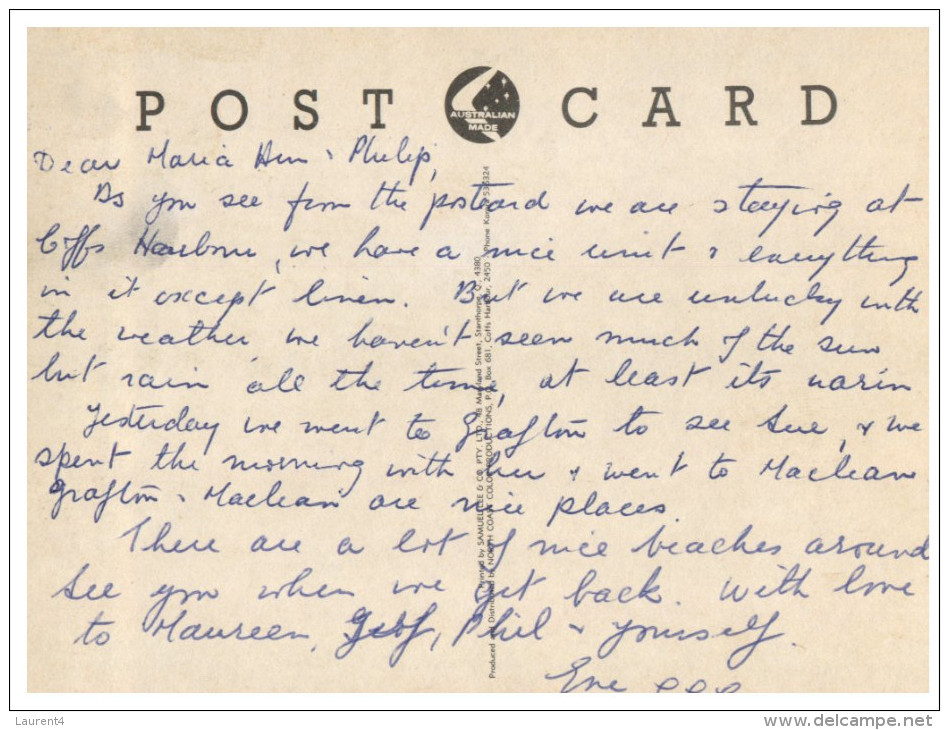 POST CARD
AUSTRALIAN
MADE
Dear Maria Ann & Philip,
As you see from the postcard we are staying at
Coffs Harbour, we have a nice unit & everything
in it except linen. But we are unlucky with
the weather, we haven't seen much of the sun
but rain all the time, at least its warm
Yesterday we went to Grafton to see Sue, & we
spent the morning with her & went to Maclean
Grafton & Maclean are nice places.
There are a lot of nice beaches around
See you when we get back. With love
to Maureen, Phil & yourself.
Eve
Printed by SAMUEL LEE & CO. PTY. LTD., Maryland Street, Stanthorpe, Q. 4380
Produced and Distributed by NORTH COAST COLOR PRODUCTIONS, P.O. Box 681, Coffs Harbour, 2450 Phone
Laurent4
www.delcampe.net